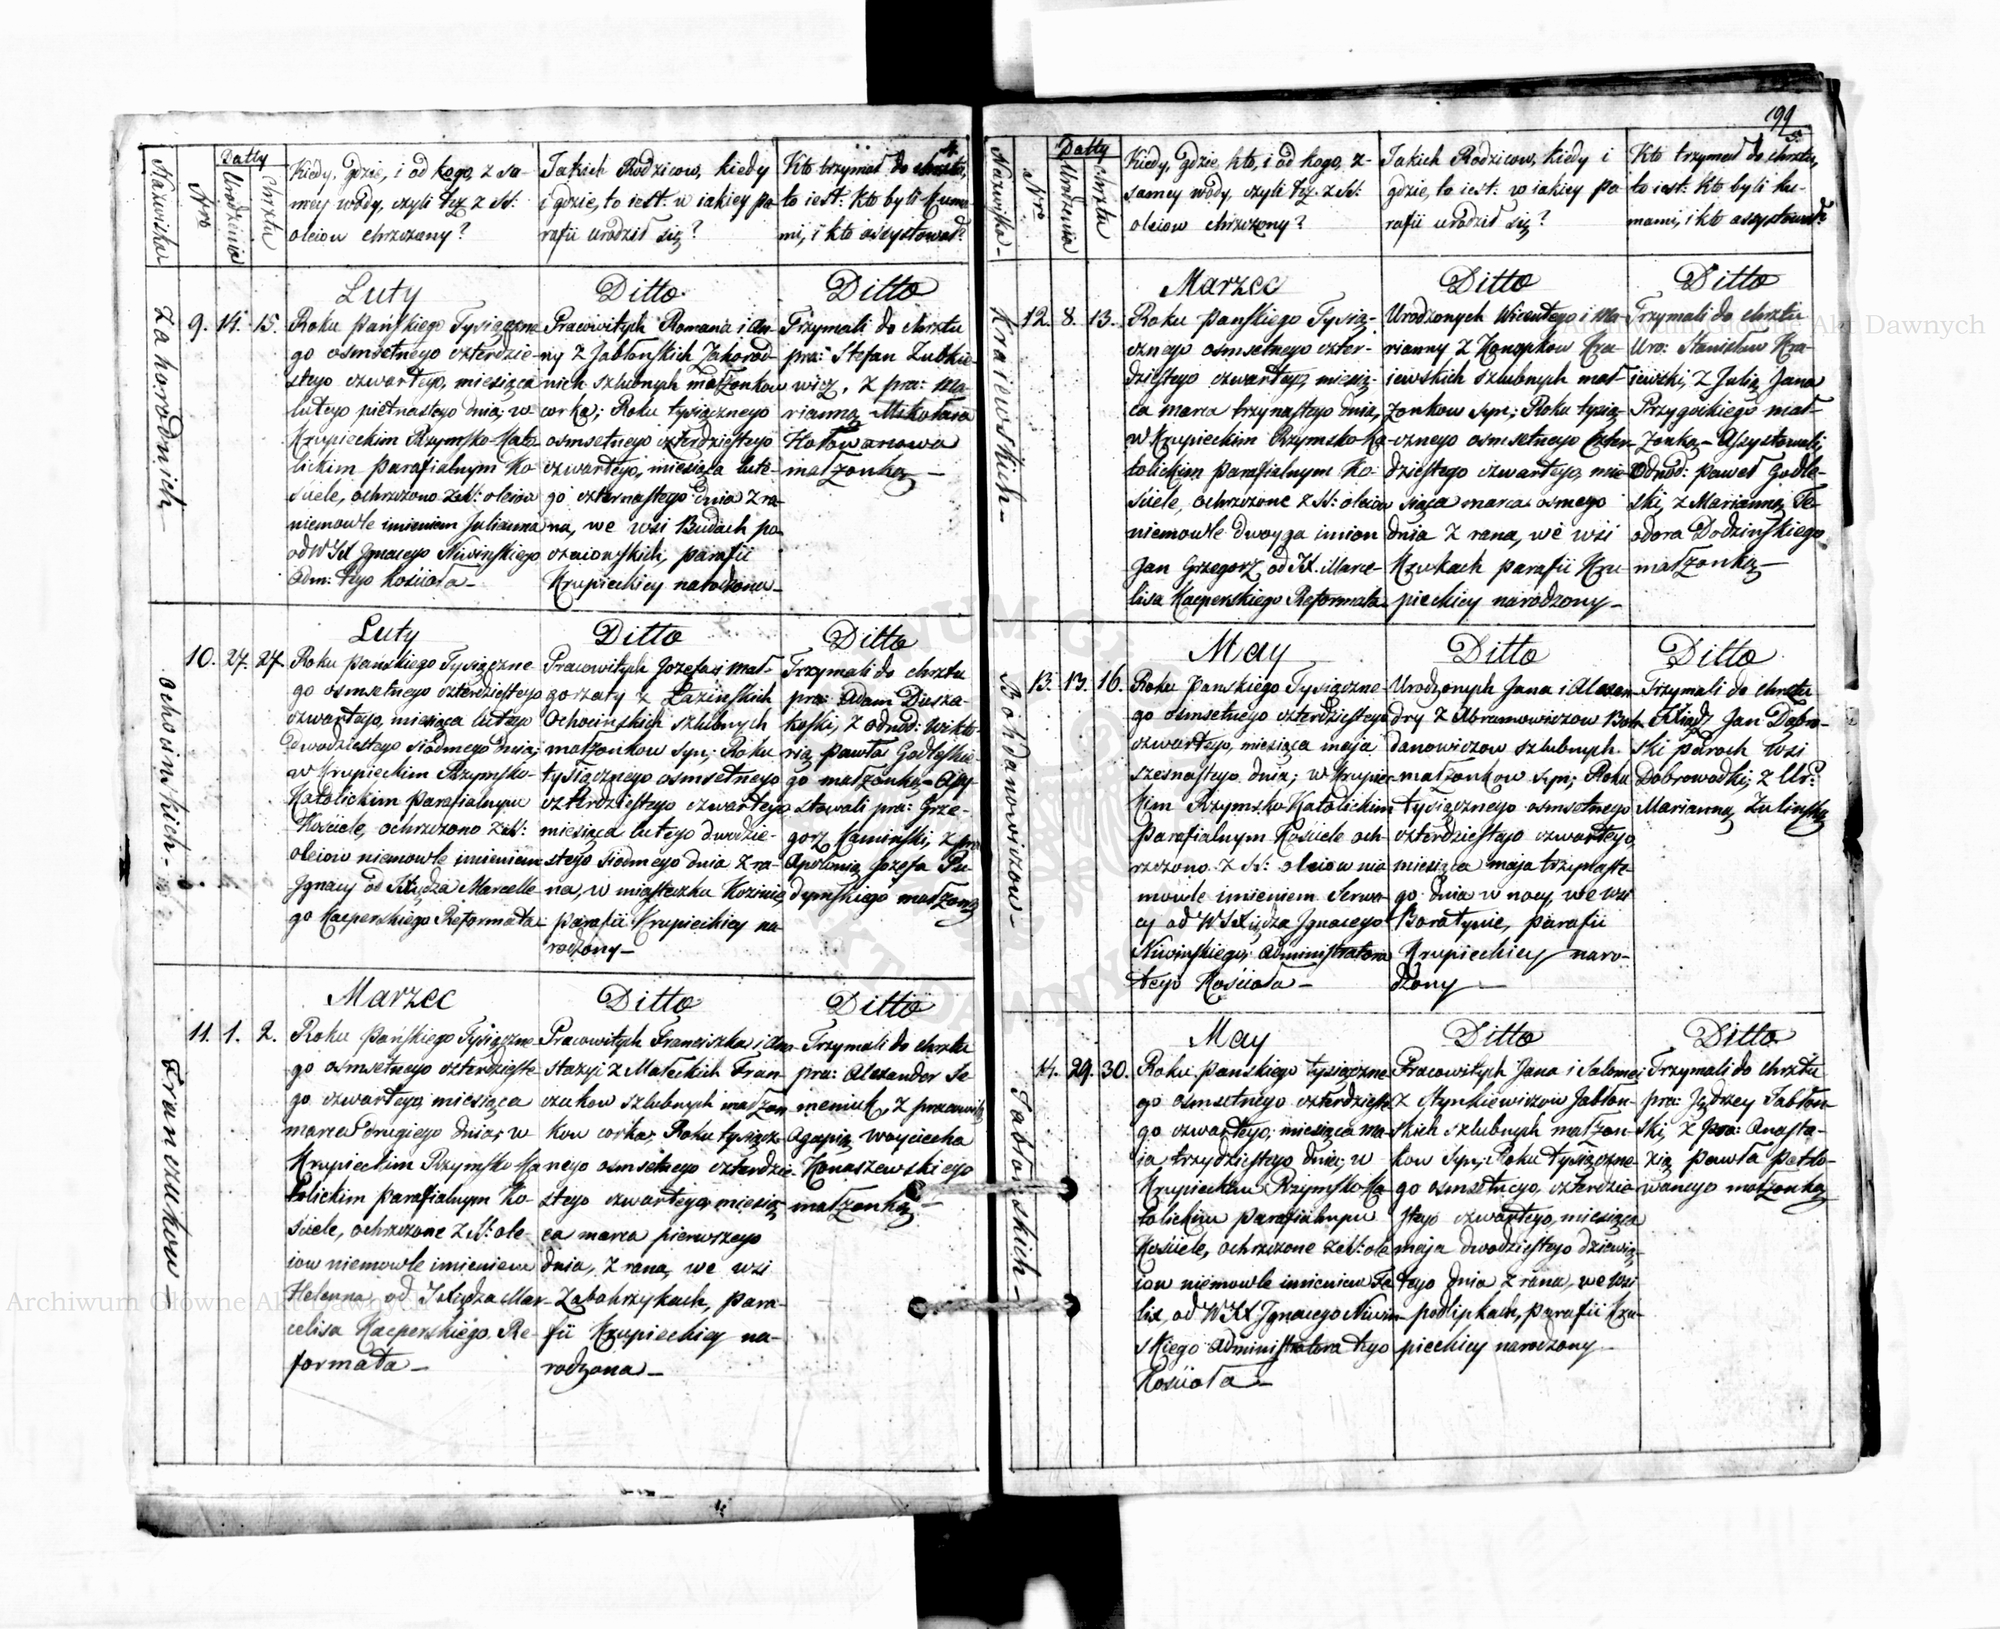 4.
Nazwiska
Nro
Datty
Urodzenia
Chrztu
Kiedy, gdzie, i od kogo, z sa-
mey wody, czyli też z SS:
oleiow chrzczony?
Jakich Rodzicow, kiedy
i gdzie, to iest: w iakiey pa-
rafii urodził się?
Kto trzymał do chrztu,
to iest: kto byli Kuma-
mi, i kto assystował?
Zahorodnich
9. 14. 15.
Luty
Roku Pańskiego Tysiączne
go osmsetnego czterdzie-
stego czwartego, miesiąca
lutego piętnastego dnia, w
Krupieckim Rzymsko-Kato
lickim parafialnym Ko-
ściele, ochrzczono z SS: oleiow
niemowle imieniem Julianna
od WJX Ignacego Niwińskiego
Adm: tego kościoła
Ditto
Pracowitych Romana i An-
ny z Jabłońskich Zahorod-
nich szlubnych małżonkow
corka; Roku tysiącznego
osmsetnego czterdziestego
czwartego, miesiąca lute-
go czternastego dnia z ra-
na, we wsi Budach po
czaiowskich, parafii
Krupieckiey narodzona
Ditto
Trzymali do chrztu
pra: Stefan Zubkie-
wicz, z pra: Ma-
rianną Mikołaia
Hołowanowa
małżonką
Ochocińskich
10. 27. 27.
Luty
Roku Pańskiego Tysiączne-
go osmsetnego czterdziestego
czwartego, miesiąca lutego
dwodziestego siódmego dnia;
w Krupieckim Rzymsko-
Katolickim parafialnym
Kościele, ochrzczono z SS:
oleiow niemowle imieniem
Ignacy od Xiędza Marcelle-
go Kacperskiego Reformata
Ditto
Pracowitych Jozefa i Mał-
gorzaty z Łazińskich
Ochocińskich szlubnych
małżonkow syn; Roku
tysiącznego osmsetnego
czterdziestego czwartego
miesiąca lutego dwodzie-
stego siodmego dnia z ra-
na, w miasteczku Kozinie,
parafii Krupieckiey na-
rodzony
Ditto
Trzymali do chrztu
pra: Adam Dusza-
koski, z odnod: Wikto-
rią Pawła Godleskie-
go małżonką, Assy-
stowali pra: Grze-
gorz Kaminski, z pra
Apolonią Jozefa Pu-
dymskiego małżonką
Franczukow
11. 1. 2.
Marzec
Roku Pańskiego Tysiączne-
go osmsetnego czterdzieste-
go czwartego, miesiąca
marca drugiego dnia, w
Krupieckim Rzymsko-Ka
tolickim parafialnym Ko-
ściele, ochrzczone z SS: ole-
iow niemowle imieniem
Helenna, od Xiędza Mar-
celisa Kacperskiego Re-
formata
Ditto
Pracowitych Franciszka i Ana-
stazyi z Małeckich Fran-
czukow szlubnych małżon
kow corka; Roku tysiącz-
nego osmsetnego czterdzie-
stego czwartego, miesią-
ca marca pierwszego
dnia, z rana, we wsi
Zabokrzykach, para-
fii Krupieckiey na-
rodzona
Ditto
Trzymali do chrztu
pra: Alexander Se-
meniuk, z pracowitą
Agapią Woyciecha
Konaszewskiego
małżonką
199
5.
Nazwiska
Nro
Datty
Urodzenia
Chrztu
Kiedy, gdzie, kto, i od kogo, z-
samey wody, czyli też z SS:
oleiow chrzczony?
Jakich Rodzicow, kiedy i
gdzie, to iest: w iakiey pa-
rafii urodził się?
Kto trzymał do chrztu,
to iest: kto byli ku-
mami, i kto assystował?
Kraiewskich
12. 8. 13.
Marzec
Roku Pańskiego Tysią-
cznego osmsetnego czter-
dziestego czwartego, miesią-
ca marca trzynastego dnia,
w Krupieckim Rzymsko-Ka-
tolickim parafialnym Ko-
ściele, ochrzczone z SS: oleiow
niemowle dwoyga imion
Jan Grzegorz od JX. Marce-
lisa Kacperskiego Reformata
Ditto
Urodzonych Wicentego i Ma-
rianny z Konopkow Kra-
iewskich szlubnych mał-
żonkow syn; Roku tysią-
cznego osmsetnego czter-
dziestego czwartego, mie-
siąca marca osmego
dnia z rana, we wsi
Krukach parafii Kru
pieckiey narodzony
Ditto
Trzymali do chrztu
Uro: Stanisław Kra-
iewski, z Julią Jana
Przygockiego mał-
żonką. Assystowali
Odnod: Paweł Godle-
ski, z Marianną Te-
odora Dodzinskiego
małżonką
Bohdanowiczow
13. 13. 16.
May
Roku Pańskiego Tysiączne-
go osmsetnego czterdziestego
czwartego, miesiąca maja
szesnastego dnia; w Krupiec-
kim Rzymsko Katolickim
parafialnym Kościele och-
rzczono z SS: oleiow nie
mowle imieniem Serwa-
cy od WJXiędza Ignacego
Niwinskiego, Administratora
tego Kościoła
Ditto
Urodzonych Jana i Alexan-
dry z Abramowiczow Boh-
danowiczow szlubnych
małżonkow syn; Roku
tysiącznego osmsetnego
czterdziestego czwartego,
miesiąca maja trzynaste-
go dnia w nocy, we wsi
Boratynie, parafii
Krupieckiey naro-
dzony
Ditto
Trzymali do chrztu
JXiądz Jan Dąbro-
ski paroch wsi
Dobrowodki, z Ur:
Marianną Zulinską
Jabłońskich
14. 29. 30.
May
Roku pańskiego tysiączne
go osmsetnego czterdzieste
go czwartego, miesiąca ma-
ia trzydziestego dnia, w
Krupieckim Rzymsko Ka-
tolickim parafialnym
Kościele, ochrzczone z SS: ole
iow niemowle imieniem Fe
lix, od WJX Ignacego Niwin-
skiego Administratora tego
Kościoła
Ditto
Pracowitych Jana i Salomei
z Hynkiewiczow Jabłon-
skich szlubnych małżon-
kow syn; Roku tysiączne-
go osmsetnego, czterdzie-
stego czwartego, miesiąca
maja dwodziestego dziewią-
tego dnia z rana, we wsi
podlipkach, parafii Kru-
pieckiey narodzony
Ditto
Trzymali do chrztu
pra: Jędrzey Jabłon-
ski, z pra: Anasta-
zią Pawła Potło-
wanego małżonką
Archiwum Główne Akt Dawnych
Archiwum Główne Akt Dawnych